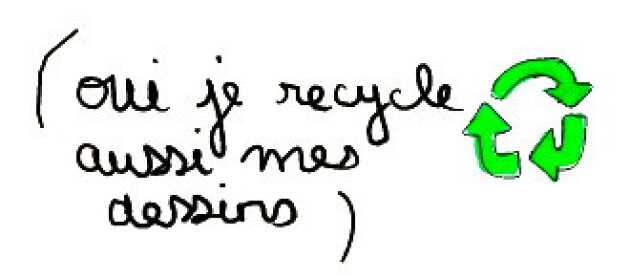 (oui je recycle
aussi mes
dessins)